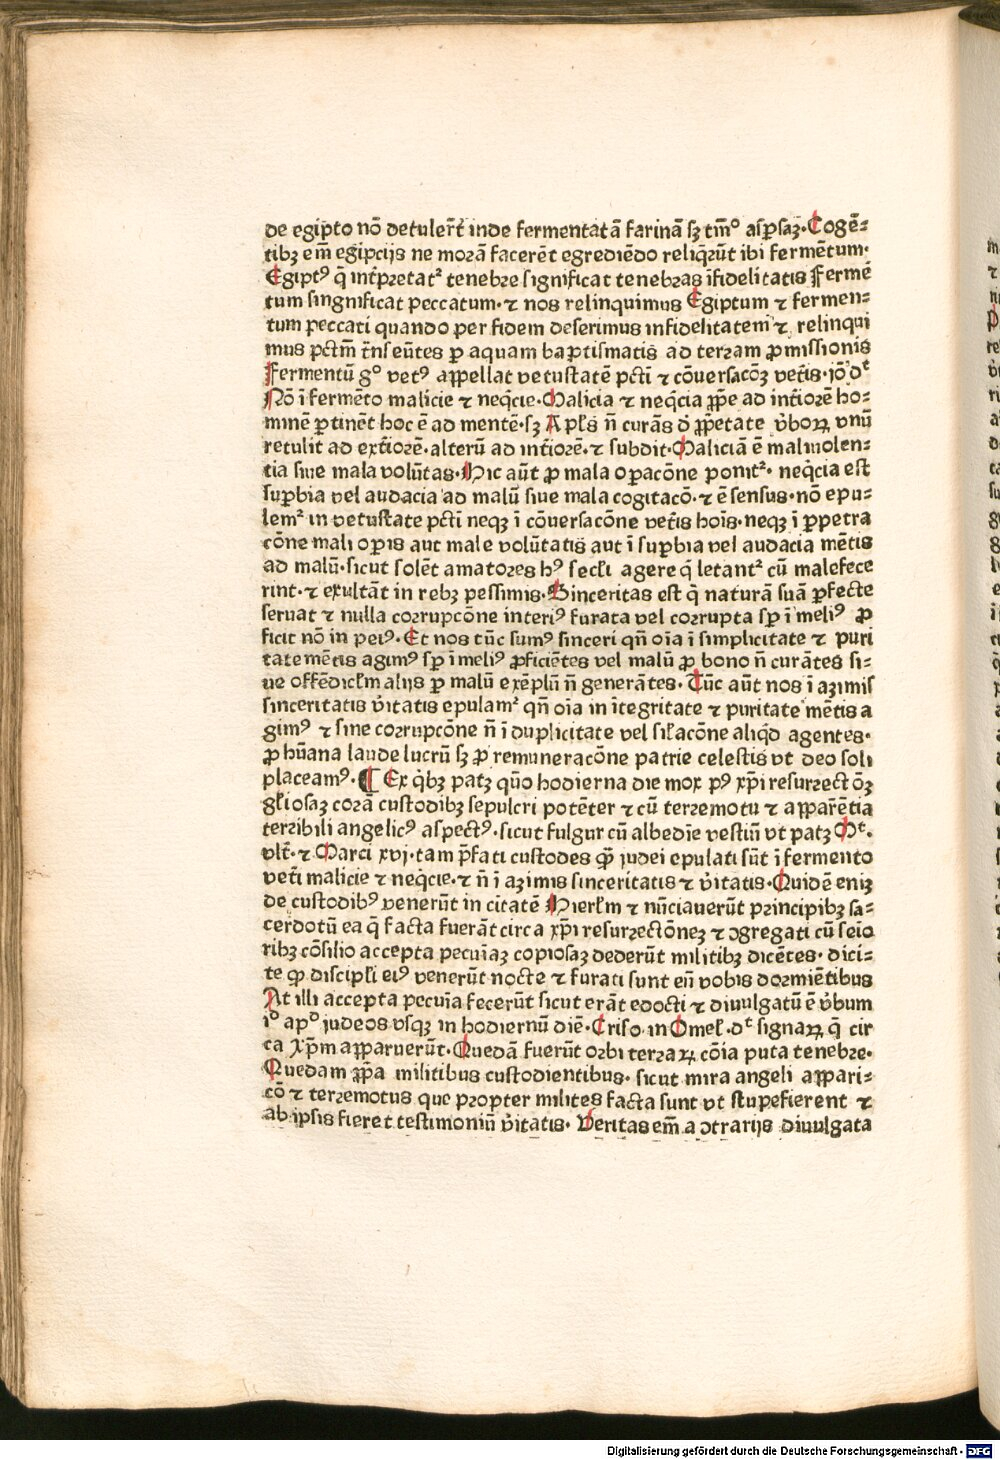 de egipto nō detulerūt inde fermentatā farinā sꝫ tm̄º asp̄saꝫ·Cogē⸗
tibꝫ em̄ egipcijs ne morā facerēt egrediēdo reliq̄rūt ibi fermētum·
Egiptꝰ q̄ int̄pretat² tenebre significat tenebras īfidelitatis Fermē
tum singnificat peccatum·⁊ nos relinquimus Egiptum ⁊ fermen⸗
tum peccati quando per fidem deserimus infidelitatem ⁊ relinqui
mus pctm̄ t̄nseūtes p aquam baptismatis ad terram ꝓmissionis
Fermentū gº vetꝰ appellat vetustatē pcti ⁊ cōuersacōꝫ vet̄is·iō dᵗ
Nō ī fermēto malicie ⁊ neq̄cie·Malicia ⁊ neq̄cia ꝓpe ad int̄iorē ho⸗
minē ꝑtinēt hoc ē ad mentē·sꝫ Apl̄s n̄ curās d̄ ꝓpetate v̄boꝝ vnū
retulit ad ext̄iorē·alterū ad int̄iorē·⁊ subdit·Maliciā ē maliuolen⸗
tia siue mala volūtas·Hic aūt ꝓ mala opacōne ponit²· neq̄cia est
sup̄bia vel audacia ad malū siue mala cogitacō·⁊ ē sensus·nō epu⸗
lem² in vetustate pcti neqꝫ ī cōuersacōne vet̄is hoīs·neqꝫ ī ꝑpetra
cōne mali opis aut male volūtatis aut ī sup̄bia vel audacia mētis
ad malū·sicut solēt amatores hꝰ secl̄i agere q̄ letant² cū malefece
rint·⁊ exultāt in rebꝫ pessimis·Sinceritas est q̄ naturā suā ꝑfecte
seruat ⁊ nulla corrupcōne interiꝰ furata vel corrupta sp̄ ī meliꝰ ꝓ
ficit nō in peiꝰ·Et nos tūc sumꝰ sinceri qn̄ oīa ī simplicitate ⁊ puri
tate mētis agimꝰ sp̄ ī meliꝰ ꝓficiētes vel malū ꝓ bono n̄ curātes si⸗
ue offēdicl̄m alijs p malū exēplū n̄ generātes·Tūc aūt nos ī azimis
sinceritatis v̄itatis epulam² qn̄ oīa in ītegritate ⁊ puritate mētis a
gimꝰ ⁊ sine corrupcōne n̄ ī duplicitate vel sil̄acōne aliq̄d agentes·
ꝓ hūana laude lucrū sꝫ ꝓ remuneracōne patrie celestis vt deo soli
placeamꝰ·¶ Ex q̄bꝫ patꝫ quō hodierna die mox pꝰ xp̄i resurrectōꝫ
gl̄iosaꝫ corā custodibꝫ sepulcri potēter ⁊ cū terremotu ⁊ apparētia
terribili angelicꝰ aspectꝰ·sicut fulgur cū albedīe vestiū vt patꝫ Mᵗ·
vlt̄·⁊ Marci xvj·tam p̄fati custodes q̄ꝫ iudei epulati sūt ī fermento
veti malicie ⁊ neq̄cie·⁊ n̄ ī azimis sinceritatis ⁊ v̄itatis·Quidē eniꝫ
de custodibꝰ venerūt in citatē Hierl̄m ⁊ nūciauerūt principibꝫ sa⸗
cerdotū ea q̄ facta fuerāt circa xp̄i resurrectōneꝫ ⁊ ꝯgregati cū seīo
ribꝫ cōsilio accepta pecuīaꝫ copiosaꝫ dederūt militibꝫ dicētes· dici⸗
te qꝫ discipl̄i eiꝰ venerūt nocte ⁊ furati sunt eū vobis dormiētibus
At illi accepta pecuīa fecerūt sicut erāt edocti ⁊ diuulgatū ē v̄bum
iº apº iudeos vsqꝫ in hodiernū diē·Criso in Omel̄·dᵗ signaꝝ q̄ cir
ca Xp̄m apparuerūt·Quedā fuerūt orbi terraꝝ cōia puta tenebre·
Quedam ꝓpa militibus custodientibus· sicut mira angeli appari⸗
cō ⁊ terremotus que propter milites facta sunt vt stupefierent ⁊
ab ipsis fieret testimoniū v̄itatis· Veritas em̄ a ꝯtrarijs diuulgata
Digitalisierung gefördert durch die Deutsche Forschungsgemeinschaft - DFG